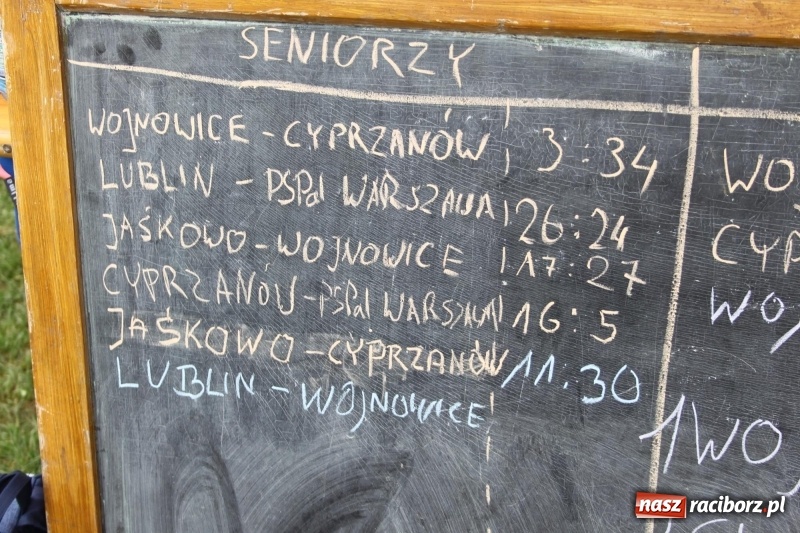 SENIORZY
WOJNOWICE - CYPRZANÓW 3:34
LUBLIN - PSPal WARSZAWA 26:24
JAŚKOWO - WOJNOWICE 17:27
CYPRZANÓW - PSPal WARSZAWA 16:5
JAŚKOWO - CYPRZANÓW 11:30
LUBLIN - WOJNOWICE
WO
CYP
WOJ
1 WOJ
nasz raciborz.pl